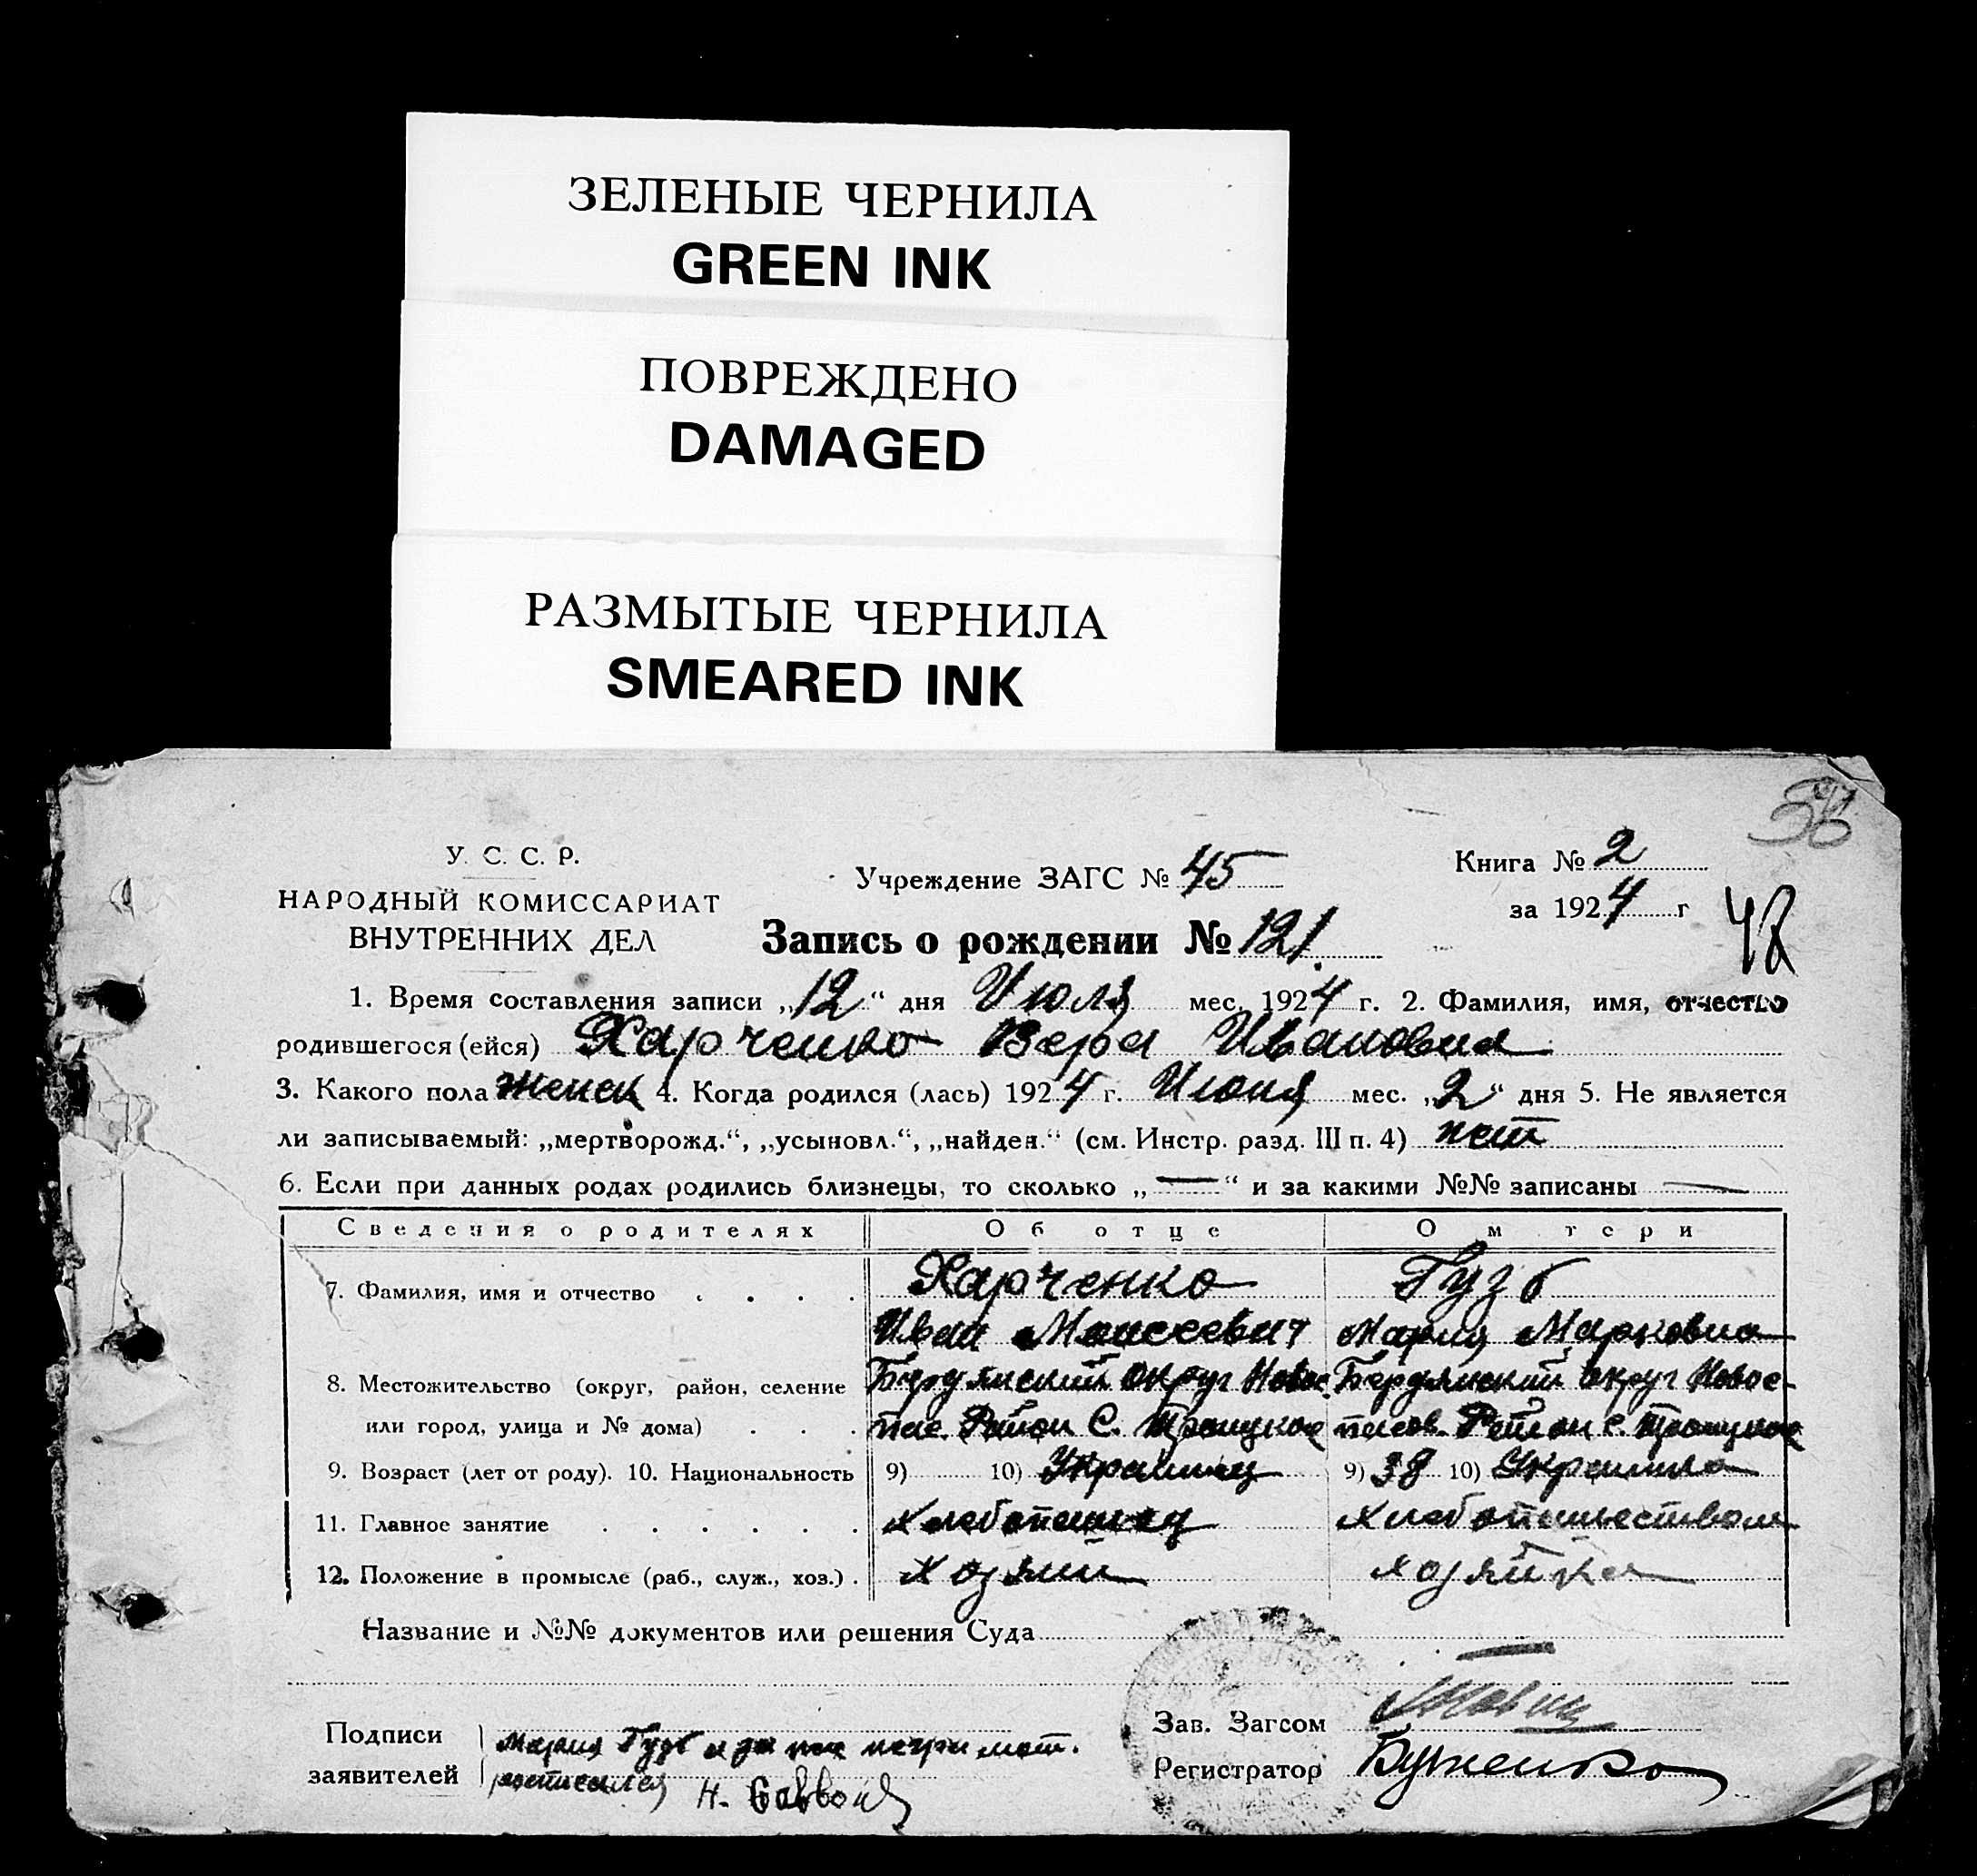 ЗЕЛЕНЫЕ ЧЕРНИЛА
GREEN INK
ПОВРЕЖДЕНО
DAMAGED
РАЗМЫТЫЕ ЧЕРНИЛА
SMEARED INK
У. С. С. Р.
НАРОДНЫЙ КОМИССАРИАТ
ВНУТРЕННИХ ДЕЛ
Учреждение ЗАГС № 45
Запись о рождении № 121.
Книга № 2
за 1924 г
1. Время составления записи „12“ дня Июля мес. 1924 г. 2. Фамилия, имя, отчество
родившегося (ейся) Харченко Вера Ивановна
3. Какого пола женск 4. Когда родился (лась) 1924 г. Июня мес. „2“ дня 5. Не является
ли записываемый: „мертворожд.“, „усыновл.“, „найден.“ (см. Инстр. разд. III п. 4) нет
6. Если при данных родах родились близнецы, то сколько „—“ и за какими №№ записаны —
Сведения о родителях Об отце О м тери
7. Фамилия, имя и отчество Харченко Гузь
Иван Моисеевич Мария Марковна
8. Местожительство (округ, район, селение Бердянский округ Новос Бердянский округ Новос-
или город, улица и № дома) пас. Район С. Троицкое пасов. Район с. Троицкое
9. Возраст (лет от роду). 10. Национальность 9) 10) Украинец 9) 38 10) Украинка
11. Главное занятие хлебопашец хлебопашеством
12. Положение в промысле (раб., служ., хоз.) хозяин хозяйка
Название и №№ документов или решения Суда
Подписи Мария Гузь а за нее неграмот.
заявителей росписался Н.
Зав. Загсом
Регистратор